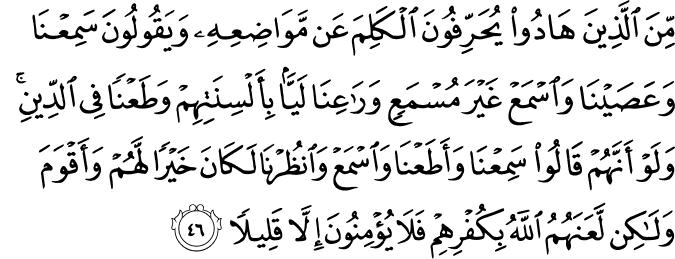 مِّنَ ٱلَّذِينَ هَادُوا۟ يُحَرِّفُونَ ٱلْكَلِمَ عَن مَّوَاضِعِهِۦ وَيَقُولُونَ سَمِعْنَا
وَعَصَيْنَا وَٱسْمَعْ غَيْرَ مُسْمَعٍ وَرَٰعِنَا لَيًّۢا بِأَلْسِنَتِهِمْ وَطَعْنًا فِى ٱلدِّينِ ۚ
وَلَوْ أَنَّهُمْ قَالُوا۟ سَمِعْنَا وَأَطَعْنَا وَٱسْمَعْ وَٱنظُرْنَا لَكَانَ خَيْرًا لَّهُمْ وَأَقْوَمَ
وَلَٰكِن لَّعَنَهُمُ ٱللَّهُ بِكُفْرِهِمْ فَلَا يُؤْمِنُونَ إِلَّا قَلِيلًا ٤٦